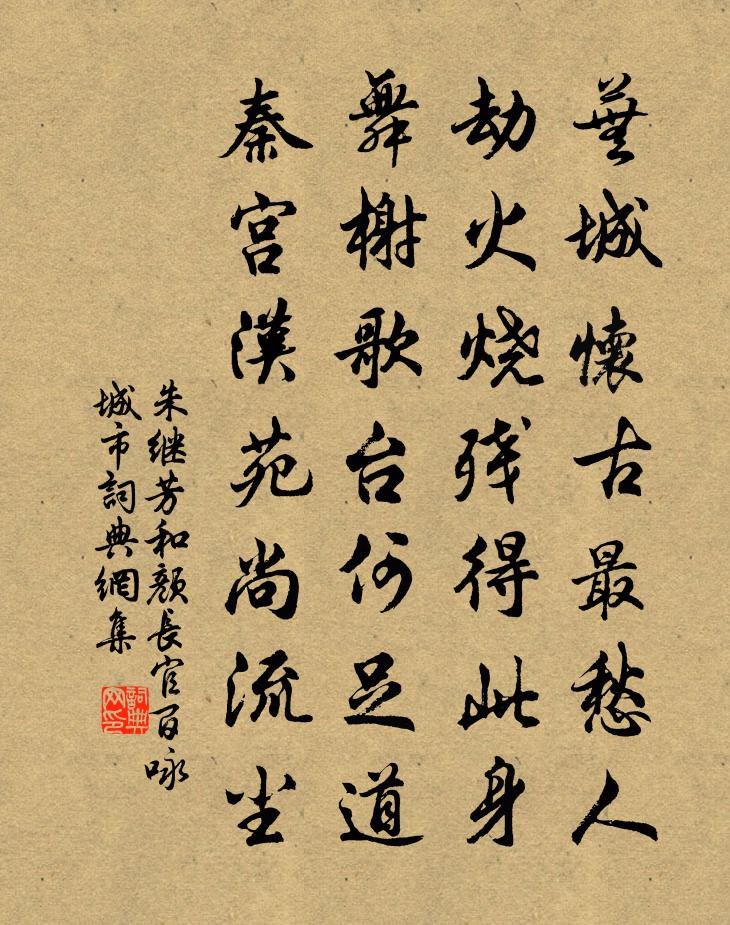 蕪城懷古最愁人
劫火烧残得此身
舞榭歌台何足道
秦宫漢苑尚流尘
朱继芳和颜長官百咏
城市詞典網集
詞典网印